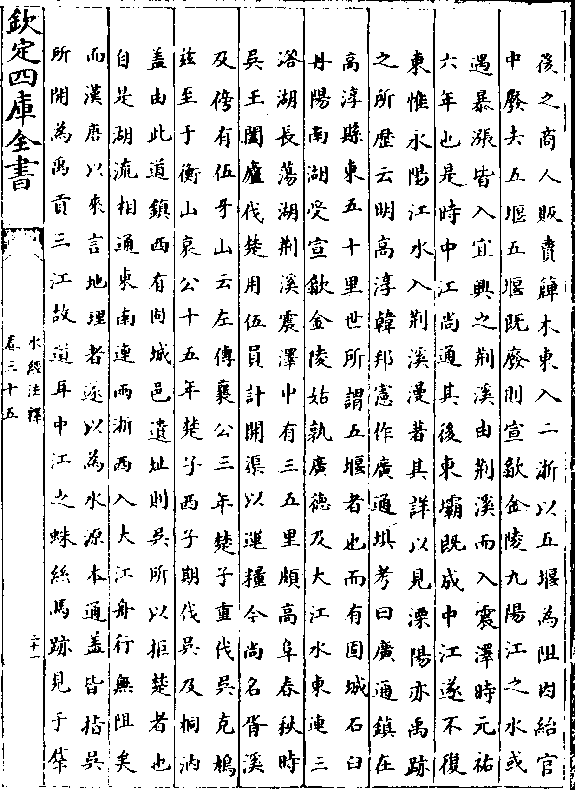 後之商人販賣簰木東入二浙以五堰為阻因紿官
中廢去五堰五堰既廢則宣歙金陵九陽江之水或
遇暴漲皆入宜興之荆溪由荆溪而入震澤時元祐
六年也是時中江尚通其後東壩既成中江遂不復
東惟永陽江水入荆溪漫著其詳以見溧陽亦禹跡
之所歴云明髙淳韓邦憲作廣通填考曰廣通鎮在
髙淳縣東五十里世所謂五堰者也而有固城石臼
丹陽南湖受宣歙金陵姑孰廣德及大江水東連三
㳻湖長蕩湖荆溪震澤中有三五里頗髙阜春秋時
吳王闔廬伐楚用伍員計開渠以運糧今尚名胥溪
及傍有伍牙山云左傳襄公三年楚子重伐吳克鳩
兹至于衡山哀公十五年楚子西子期伐吳及桐汭
盖由此道鎮西有固城邑遺址則吳所以拒楚者也
自是湖流相通東南連兩浙西入大江舟行無阻矣
而漢唐以來言地理者遂以為水源本通盖皆指吳
所開為禹貢三江故道耳中江之蛛絲馬跡見于葉
欽定四庫全書
水經注釋
卷三十五
二十一